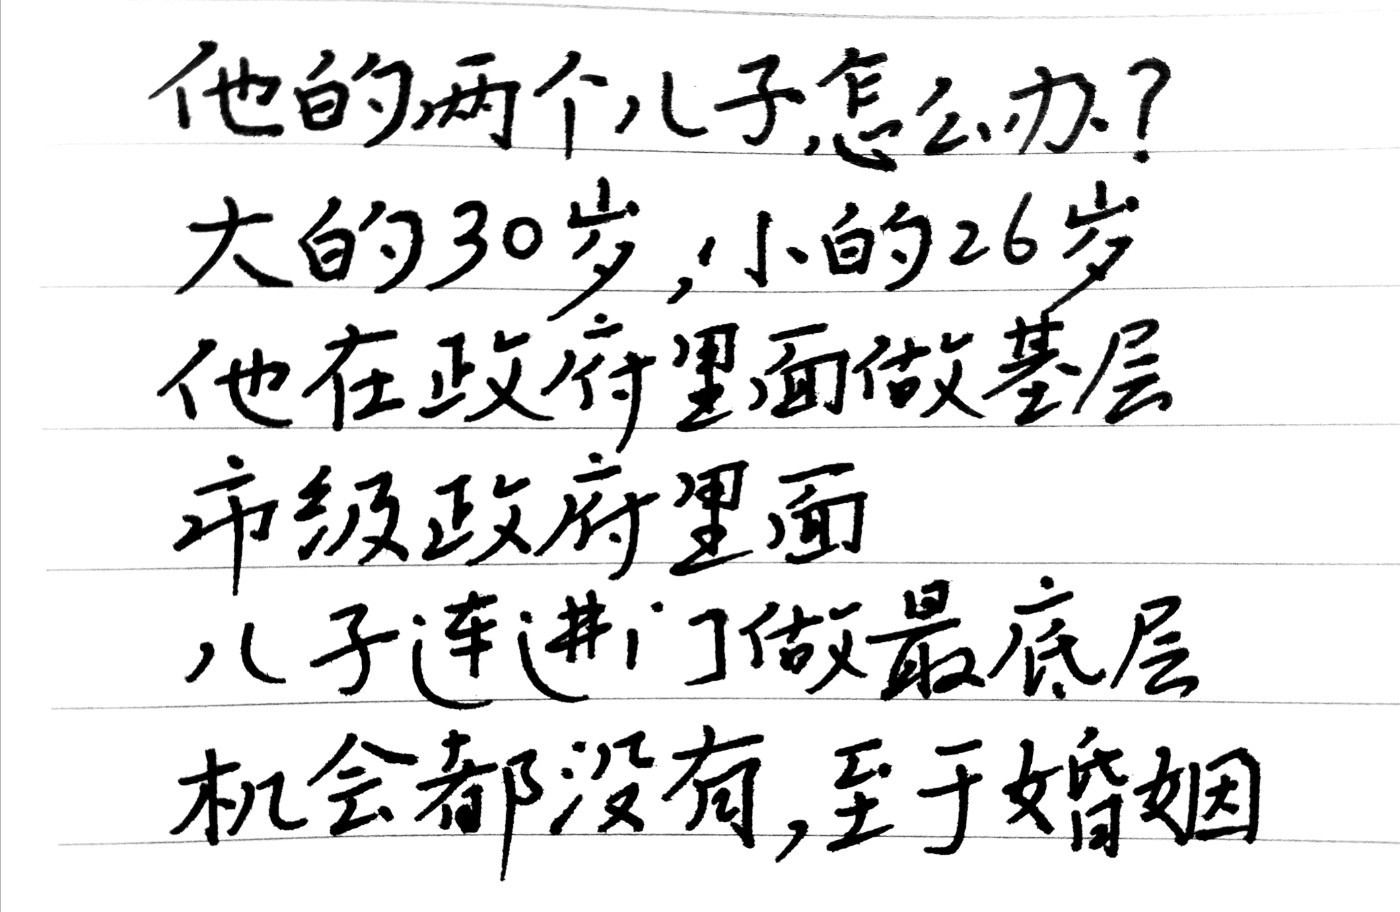 他的两个儿子怎么办？
大的30岁，小的26岁
他在政府里面做基层
市级政府里面
儿子连进门做最底层
机会都没有，至于婚姻